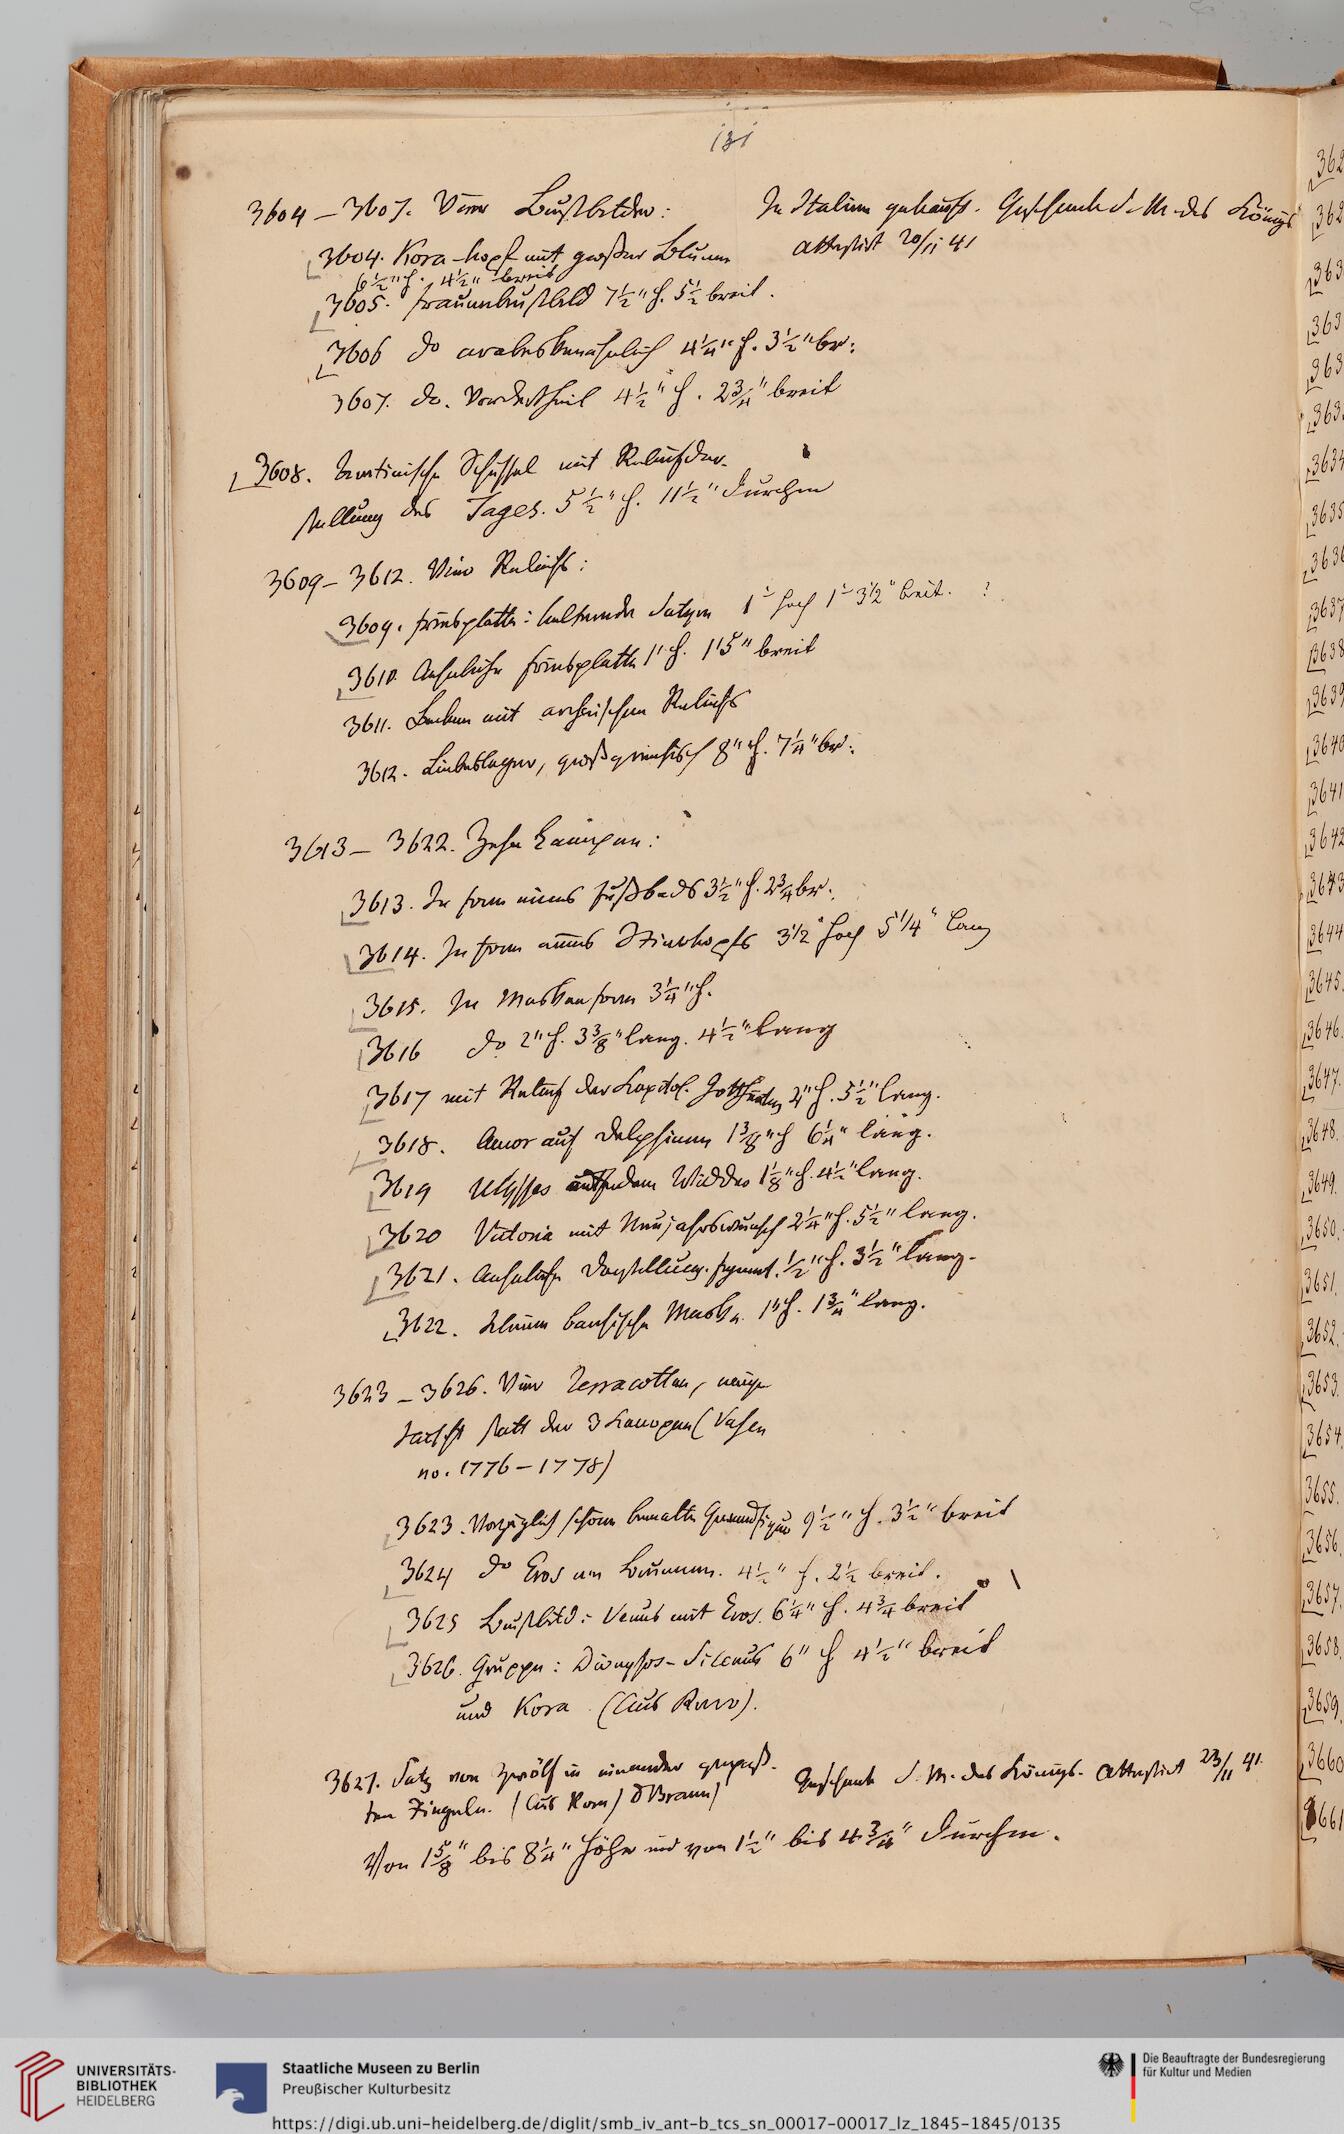 131
3604 – 3607. Vier Brustbilder: In Italien gekauft. Geschenk S. M. des Königs
attestirt 20/11 41
3604. Kora-kopf mit großer Blume
6 1/2" h. 4 1/2" breit
3605. Frauenbrustbild 7 1/2" h. 5 1/2 breit.
3606 do arabeskenähnlich 4 1/4" h. 3 1/2" br:
3607. do. Vordertheil 4 1/2" h. 2 3/4" breit
3608. Schüssel mit Reliefdar-
stellung des Tages. 5 1/2" h. 11 1/2" Durchm
3609 – 3612. Vier Reliefs:
3609. Friesplatte: kelternde Satyrn 1' hoch 1' 3 1/2" breit. ?
3610. Aehnliche Friesplatte 1' h. 1' 5" breit
3611. Becken mit archaischen Reliefs
3612. Liebeslager, großgriechisch 8" h. 7 1/4" br:
3613 – 3622. Zehn Lampen:
3613. In Form eines 3 1/2" h. 2 3/4 br:
3614. In Form eines Stierkopfs 3 1/2" hoch 5 1/4" lang
3615. In Maskenform 3 1/4" h.
3616 do 2" h. 3 3/8" lang. 4 1/2" lang
3617 mit Relief der Kapitol. Gottheiten 2" h. 5 1/2" lang.
3618. Amor auf Delphinen 1 3/8" h 6 1/4" lang.
3619 Ulysses unter dem Widder 1 1/8" h. 4 1/2" lang.
3620 Victoria mit Neujahrswunsch 2 1/4" h. 5 1/2" lang.
3621. Aehnliche Darstellung. fragment. 1/2" h. 3 1/2" lang.
3622. Kleine bacchische Maske. 1" h. 1 3/4" lang.
3623 – 3626. Vier Terracotten, einge-
tauscht statt der 3 Kanopen (Vasen
no. 1776 – 1778)
3623. Vorzüglich schöne bemalte Gewandfigur 9 1/2" h. 3 1/2" breit
3624 do Eros am Brunnen. 4 1/2" h. 2 1/2 breit.
3625 Brustbild: Venus mit Eros. 6 1/4" h. 4 3/4 breit
3626. Gruppe: Dionysos-Silenus 6" h 4 1/2" breit
und Kora (Aus Rom).
3627. Satz von zwölf in einander gepaß-
ten Tiegeln. (Aus Rom / D Braun) Geschenk S. M. des Königs. attestirt 23/11 41.
Von 1 5/8" bis 8 1/4" Höhe und von 1 1/2" bis 4 3/4" Durchm.
362
362
363
363
363
363
3634
3635
3636
3637
3638
3639
3640
3641
3642
3643
3644
3645.
3646.
3647.
3648.
3649.
3650.
3651.
3652.
3653.
3654.
3655.
3656.
3657.
3658.
3659.
3660
3661
UNIVERSITÄTS-
BIBLIOTHEK
HEIDELBERG
Staatliche Museen zu Berlin
Preußischer Kulturbesitz
Die Beauftragte der Bundesregierung
für Kultur und Medien
https://digi.ub.uni-heidelberg.de/diglit/smb_iv_ant-b_tcs_sn_00017-00017_lz_1845-1845/0135